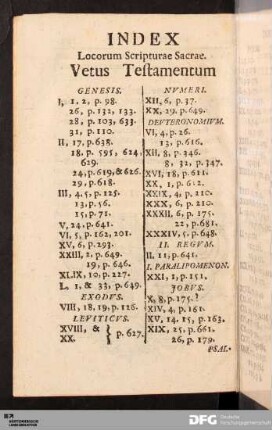 INDEX
Locorum Scripturae Sacrae.
Vetus Testamentum
GENESIS.
I, 1, 2, p. 98.
26, p. 132, 133.
28, p. 103, 633.
31, p. 110.
II, 17, p. 638.
18, p. 595, 624,
629.
24, p. 619, & 626.
29, p. 618.
III, 4, 5, p. 125.
13, p. 56.
15, p. 71.
V, 24, p. 641.
VI, 5, p. 162, 201.
XV, 6, p. 293.
XXIII, 2, p. 649.
19, p. 646.
XLIX, 10, p. 227.
L, 1, & 33, p. 649.
EXODVS.
VIII, 18, 19, p. 126.
LEVITICVS.
XVIII, & XX. } p. 627.
NVMERI.
XII, 6, p. 37.
XX, 29, p. 649.
DEVTERONOMIVM.
VI, 4, p. 26.
13, p. 616.
XII, 8, p. 346.
8, 32, p. 347.
XVI, 18, p. 611.
XX, 1, p. 612.
XXIX, 4, p. 210.
XXX, 6, p. 210.
XXXII, 6, p. 175.
22, p. 681.
XXXIV, 5, p. 648.
II. REGVM.
II, 11, p. 641.
I. PARALIPOMENON.
XXI, 1, p. 151.
JOBVS.
X, 8, p. 175.
XIV, 4, p. 161.
XV, 14. 15, p. 163.
XIX, 25, p. 661.
26, p. 179.
PSAL-
DFG
Deutsche
Forschungsgemeinschaft